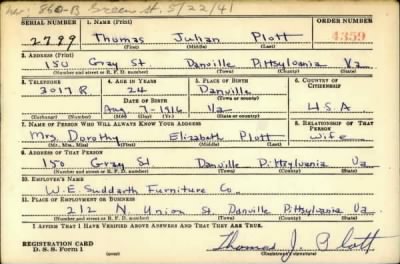 860-B Green St. 5/22/41
SERIAL NUMBER 1. NAME (Print) ORDER NUMBER
2799 Thomas Julian Plott 4359
(First) (Middle) (Last)
2. ADDRESS (Print)
150 Gray St Danville Pittsylvania Va
(Number and street or R. F. D. number) (Town) (County) (State)
3. TELEPHONE 4. AGE IN YEARS 5. PLACE OF BIRTH 6. COUNTRY OF CITIZENSHIP
3017 R 24 Danville
DATE OF BIRTH (Town or county)
Aug 7 - 1916 Va U.S.A
(Exchange) (Number) (Mo.) (Day) (Yr.) (State or country)
7. NAME OF PERSON WHO WILL ALWAYS KNOW YOUR ADDRESS 8. RELATIONSHIP OF THAT PERSON
Mrs. Dorothy Elizabeth Plott wife
(Mr., Mrs., Miss) (First) (Middle) (Last)
9. ADDRESS OF THAT PERSON
150 Gray St Danville Pittsylvania Va
(Number and street or R. F. D. number) (Town) (County) (State)
10. EMPLOYER'S NAME
W.E Suddarth Furniture Co.
11. PLACE OF EMPLOYMENT OR BUSINESS
212 N. Union St Danville Pittsylvania Va
(Number and street or R. F. D. number) (Town) (County) (State)
I AFFIRM THAT I HAVE VERIFIED ABOVE ANSWERS AND THAT THEY ARE TRUE.
REGISTRATION CARD
D. S. S. Form 1 Thomas J. Plott
(Registrant's signature)